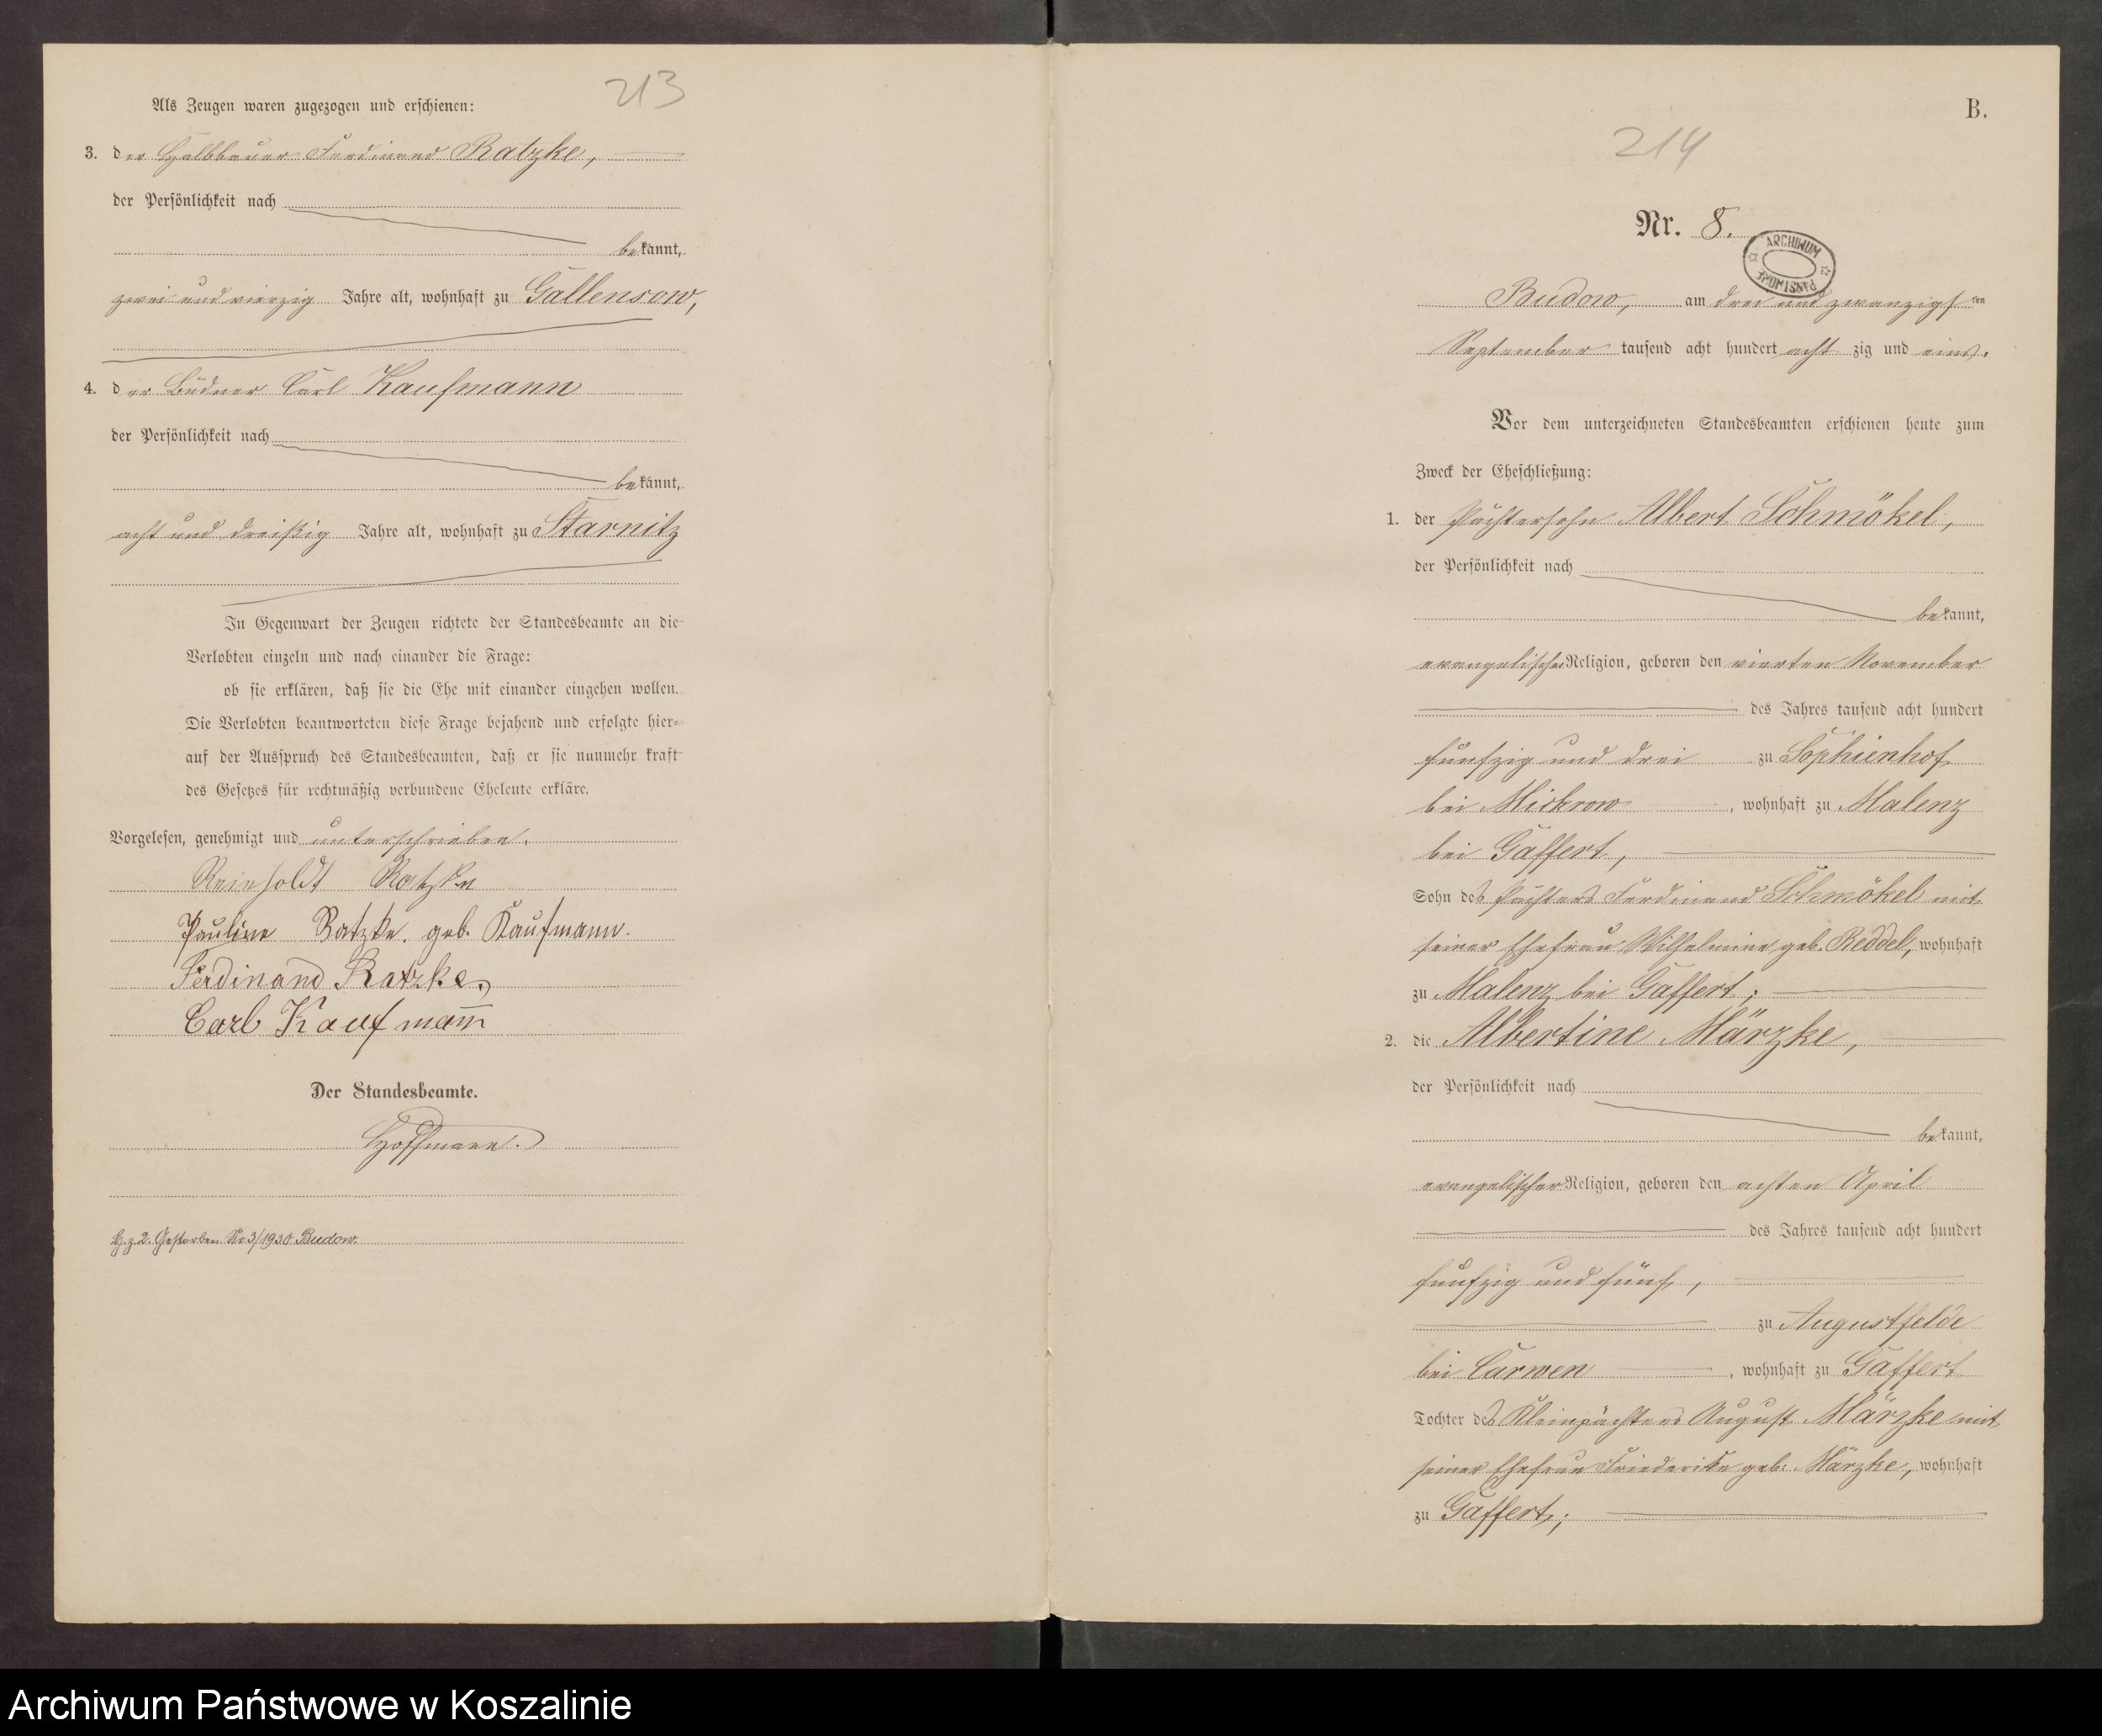 213
Als Zeugen waren zugezogen und erschienen:
3. der Halbbauer Ferdinand Ratzke,
der Persönlichkeit nach
bekannt,
zwei und vierzig Jahre alt, wohnhaft zu Gallensow,
4. der Büdner Carl Kaufmann
der Persönlichkeit nach
bekannt,
acht und dreißig Jahre alt, wohnhaft zu Starnitz
In Gegenwart der Zeugen richtete der Standesbeamte an die
Verlobten einzeln und nach einander die Frage:
ob sie erklären, daß sie die Ehe mit einander eingehen wollen.
Die Verlobten beantworteten diese Frage bejahend und erfolgte hier-
auf der Ausspruch des Standesbeamten, daß er sie nunmehr kraft
des Gesetzes für rechtmäßig verbundene Eheleute erkläre.
Vorgelesen, genehmigt und unterschrieben.
Reinholdt Ratzke
Pauline Ratzke. geb. Kaufmann.
Ferdinand Ratzke.
Carl Kaufmann
Der Standesbeamte.
Hoffmann.
H. z. 2. Gestorben Nr 3/1930 Budow.
B.
214
Nr. 8.
ARCHIWUM PAŃSTWOWE
Budow, am drei und zwanzigsten
September tausend acht hundert acht zig und eins.
Vor dem unterzeichneten Standesbeamten erschienen heute zum
Zweck der Eheschließung:
1. der Pächtersohn Albert Schmökel,
der Persönlichkeit nach
bekannt,
evangelischer Religion, geboren den vierten November
des Jahres tausend acht hundert
funfzig und drei zu Sophienhof
bei Mickrow, wohnhaft zu Malenz
bei Gaffert,
Sohn des Pächters Ferdinand Schmökel mit
seiner Ehefrau Wilhelmine geb. Reddel, wohnhaft
zu Malenz bei Gaffert;
2. die Albertine Märzke,
der Persönlichkeit nach
bekannt,
evangelischer Religion, geboren den achten April
des Jahres tausend acht hundert
funfzig und fünf,
zu Augustfelde
bei Carwen, wohnhaft zu Gaffert
Tochter des Kleinpächters August Märzke mit
seiner Ehefrau Friederike geb. Märzke, wohnhaft
zu Gaffert;
Archiwum Państwowe w Koszalinie